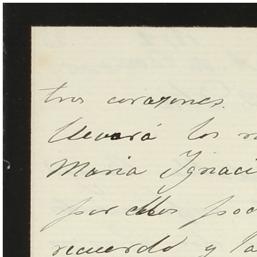 tros corazones.
llevará los
Maria Ignaci
por ellos
recuerdo y la